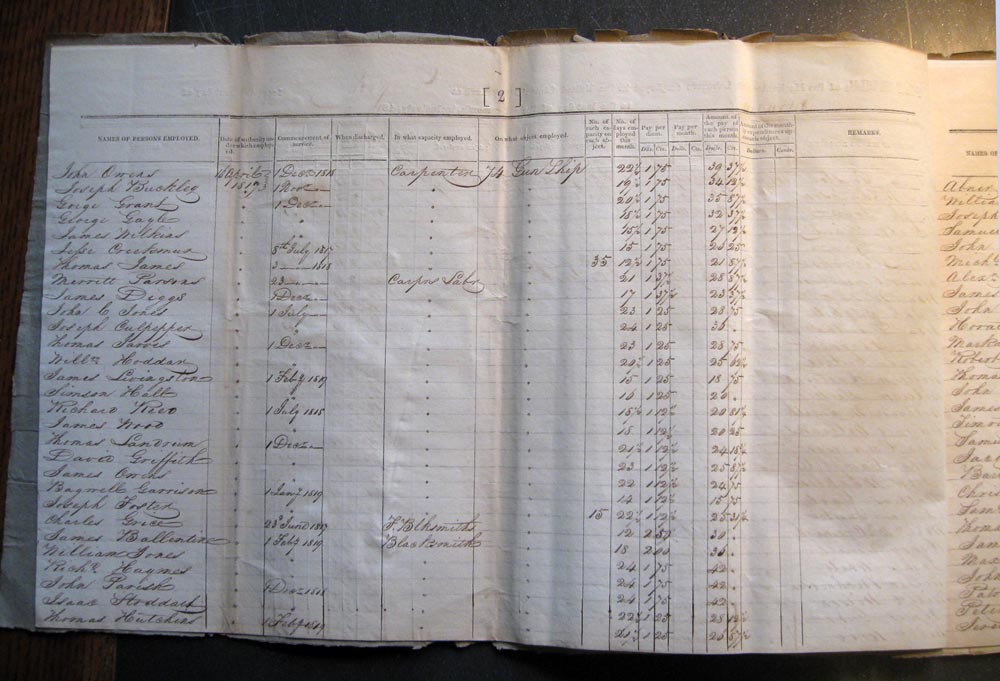 [ 2 ]
NAMES OF PERSONS EMPLOYED. Date of authority under which employed. Commencement of service. When discharged. In what capacity employed. On what object employed. No. of each capacity on each object. No. of days employed this month. Pay per diem. Pay per month. Amount of the pay of each person this month. Amount of the monthly expenditures upon each object. REMARKS.
Dlls. Cts. Dolls. Cts. Dolls. Cts. Dollars. Cents.
John Owens 1 Decr 1818 Carpenter 74 Gun Ship 22½ 1 75 39 37½
Joseph Buckley 1817 1 Novr 19½ 1 75 34 12½
George Grant 1 Decr 20½ 1 75 35 87½
George Gayle 18½ 1 75 32 37½
James Wilkins 15½ 1 75 27 12½
Jesse Creekmur 8th July 1817 15 1 75 26 25
Thomas James 3 1818 35 12½ 1 75 21 87½
Merritt Parsons 23 Carpr Labr 21 1 37½ 28 87½
James Diggs 1 Decr 17 1 37½ 23 37½
John C Jones 1 July 23 1 25 28 75
Joseph Culpepper 24 1 25 30
Thomas Jarvis 1 Decr 23 1 25 28 75
Willm Hoddan 20½ 1 25 25 62½
James Livingston 1 Feby 1819 15 1 25 18 75
Simeon Halt 16 1 25 20
Richard Reed 1 July 1818 18½ 1 12½ 20 81¼
James Wood 18 1 12½ 20 25
Thomas Landrum 1 Decr 21½ 1 12½ 24 18¾
David Griffith 23 1 12½ 25 87½
James Owens 22 1 12½ 24 75
Bagwell Garrison 1 Jany 1819 14 1 12½ 15 75
Joseph Foster 15 22½ 1 12½ 25 31¼
Charles Grice 23d June 1817 F. Blksmith 12 2 50 30
James Ballentine 1 Feby 1819 Blacksmith 18 2 00 36
William Jones 24 1 75 42
Richd Haymes 24 1 75 42
John Parish 1 Decr 1818 24 1 75 42
Isaac Stoddart 22½ 1 25 28 12½
Thomas Hutchins 1 Feby 1819 21¼ 1 25 26 57
NAMES OF
Abner
William
Joseph
Samuel
John
Michl
Alexr
James
John
Horac
Robert
Thomas
John
James